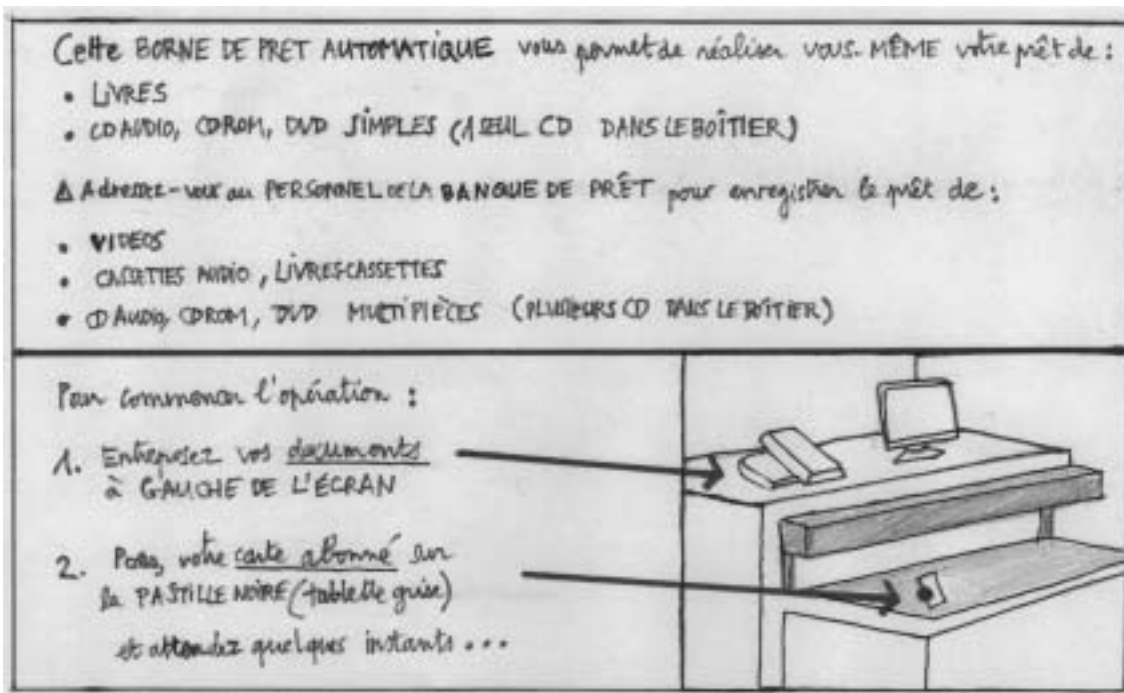 Cette BORNE DE PRET AUTOMATIQUE vous permet de réaliser VOUS-MÊME votre prêt de :
• LIVRES
• CD AUDIO, CDROM, DVD SIMPLES (1 SEUL CD DANS LE BOÎTIER)
Δ Adressez-vous au PERSONNEL DE LA BANQUE DE PRÊT pour enregistrer le prêt de :
• VIDEOS
• CASSETTES AUDIO, LIVRES-CASSETTES
• CD AUDIO, CDROM, DVD MULTIPIÈCES (PLUSIEURS CD DANS LE BOÎTIER)
Pour commencer l'opération :
1. Entreposez vos documents
à GAUCHE DE L'ÉCRAN
2. Posez votre carte abonné sur
la PASTILLE NOIRE (tablette grise)
et attendez quelques instants ...